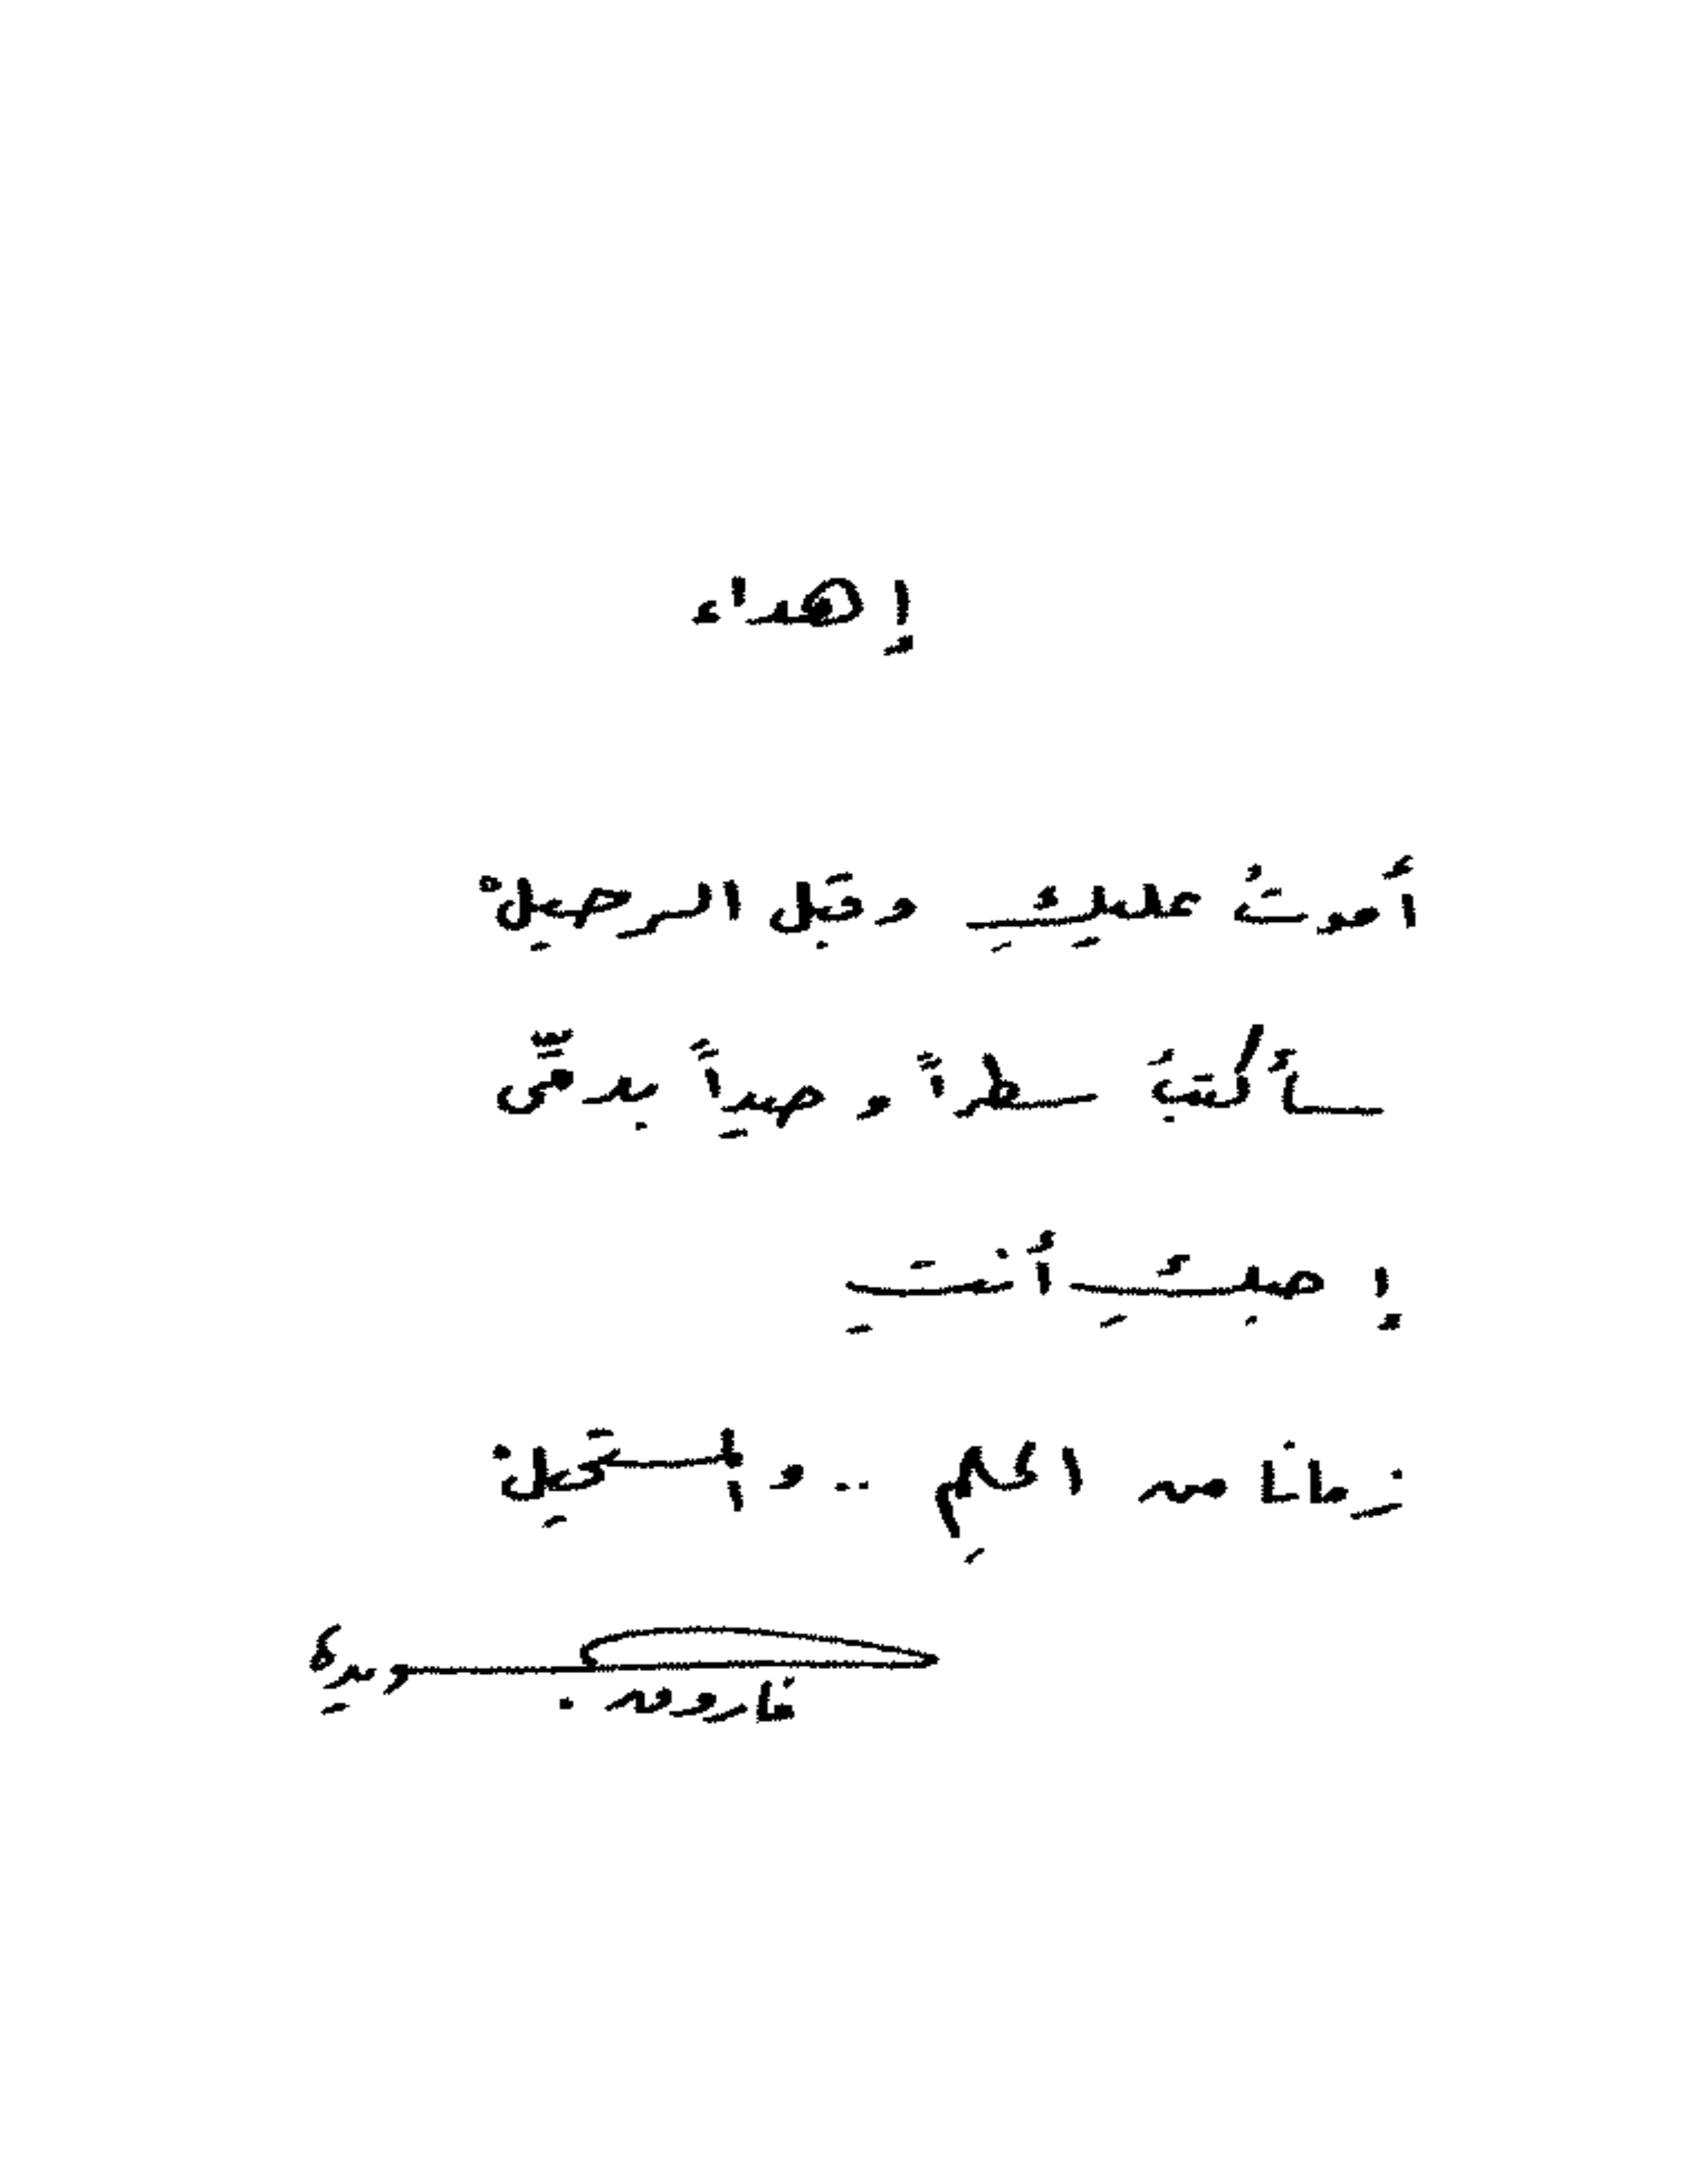 إهداء
أموتُ عليكِ وقبل الرحيلْ
سأكتبُ سطراً وحيداً بدمّى
أحبكِ أنتِ
زماناً من الحلمِ .. والمستحيل
فاروق جويدة